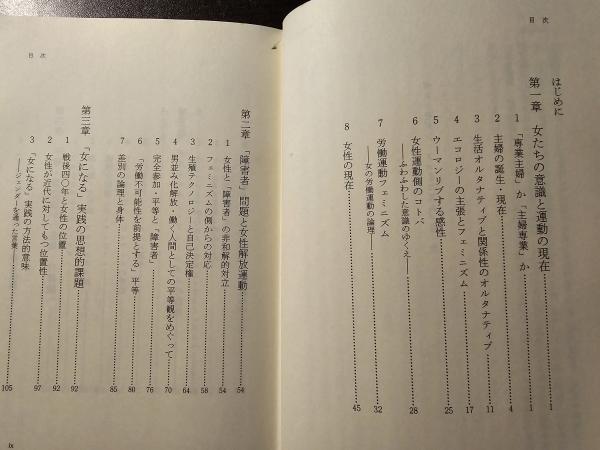 目次
はじめに……1
第一章 女たちの意識と運動の現在……1
1 「専業主婦」か「主婦専業」か……4
2 主婦の誕生・現在……11
3 生活オルタナティブと関係性のオルタナティブ……17
4 エコロジーの主張とフェミニズム……25
5 ウーマンリブする感性
6 女性運動側のコトバ……28
——ふわふわした意識のゆくえ——
7 労働運動フェミニズム……32
——女の労働運動の論理——
8 女性の現在……45
目次
第二章 「障害者」問題と女性解放運動……54
1 女性と「障害者」の非和解的対立……54
2 フェミニズムの側からの対応……58
3 生殖テクノロジーと自己決定権……64
4 男並み化解放・働く人間としての平等観をめぐって……70
5 完全参加・平等と「障害者」……76
6 「労働不可能性を前提とする」平等……80
7 差別の論理と身体……85
第三章 「女になる」実践の思想的課題……92
1 戦後四〇年と女性の位置……92
2 女性が近代に対してもつ位置性……97
3 「女になる」実践の方法的意味……105
——ジェンダーを纏った言葉——
ix